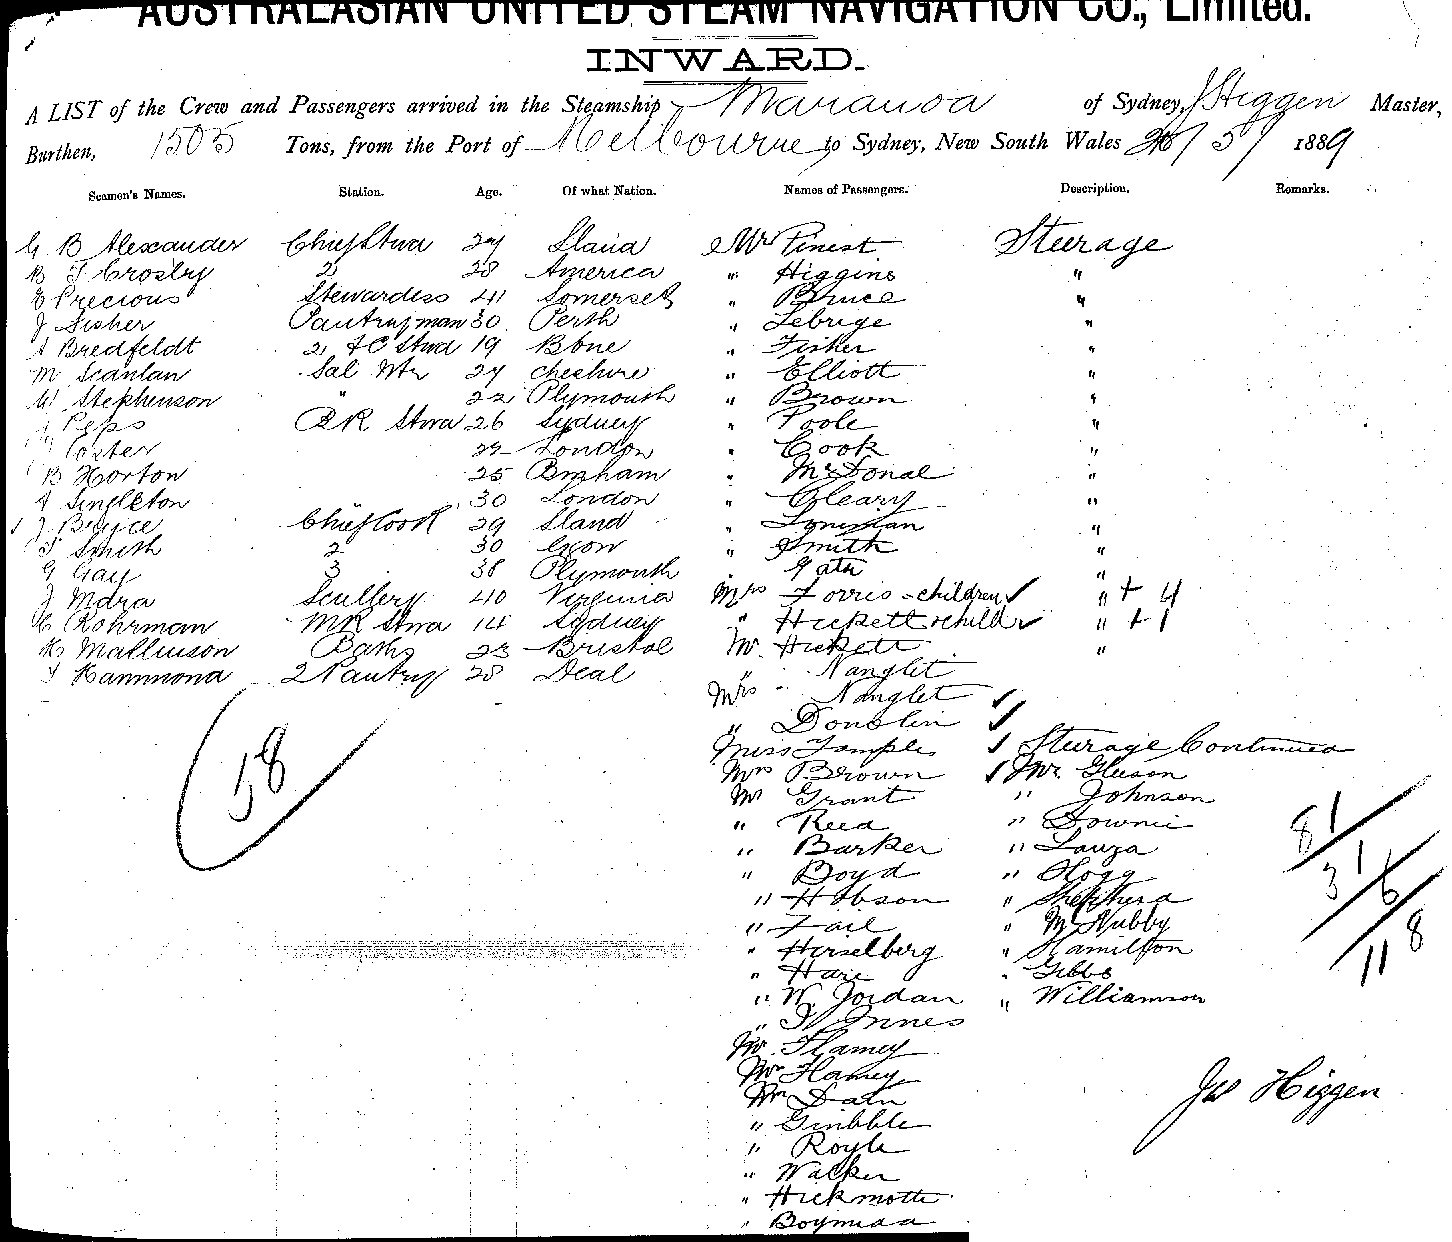 AUSTRALASIAN UNITED STEAM NAVIGATION CO., Limited.
INWARD.
A LIST of the Crew and Passengers arrived in the Steamship Maranoa of Sydney, J Higgen Master,
Burthen, 1505 Tons, from the Port of Melbourne to Sydney, New South Wales 26/5/ 1889
Seamen's Names. Station. Age. Of what Nation. Names of Passengers. Description. Remarks.
G B Alexander Chief Stwd 27 Sland Mr Pinest Steerage
B T Crosby 2 28 America " Higgins "
E Precious Stewardess 41 Somerset " Bruce "
J Fisher Pantryman 30 Perth " Lebrige "
A Bredfeldt 2 & C Stwd 19 Bone " Fisher "
M Scanlan Sal Wtr 27 Cheshire " Elliott "
W Stephenson " 22 Plymouth " Brown "
Peps BR Stwd 26 Sydney " Poole "
Foster 22 London " Cook "
B Horton 25 Bmham " McDonal "
A Singleton 30 London " Oleary "
J Bruce Chief Cook 29 Sland " "
T Smith 2 30 Exon " Smith "
G Gay 3 38 Plymouth " "
J Mdra Scullery 40 Virginia Mrs Forris - children " + 4
C Rohrman MR Stwd 14 Sydney " Hickett + child " + 1
H Mallinson Baths 23 Bristol Mr. Hickett "
Y Hammond 2 Pantry 28 Deal " Nanglet
Mrs Nanglet
" Donolin
Miss Temple Steerage Continued
Mrs Brown Mr. Gleeson
Mr Grant " Johnson
" Reed " Downie
" Barker " Lauza
" Boyd " Hogg
" Hobson " Shepherd
" Fail " McNubby
" Herselberg " Hamilton
" Hare " Gibbs
" W. Jordan " Williamson
" Innes
Mr. Flamey
Mrs Flamey
Mr Dain
" Gribble
" Royle
" Walker
" Hickmotte
" Boymead
58
81
31 6
118
Jas Higgen